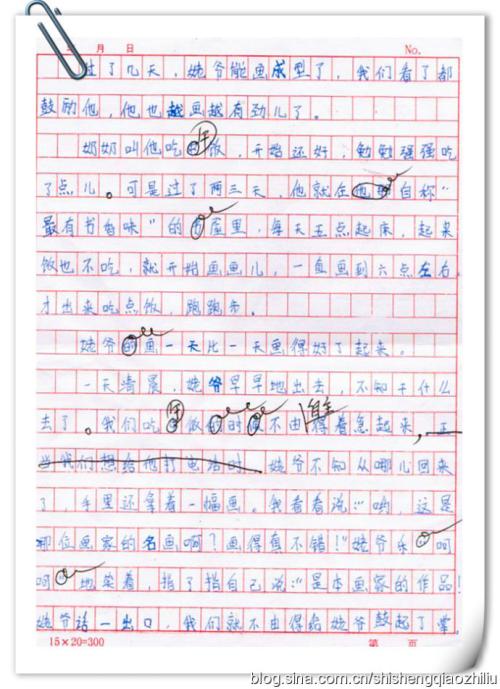 月 日 No.
过了几天，姥爷能画成型了，我们看了都
鼓励他，他也越画越有劲儿了。
奶奶叫他吃午饭，开始还好，勉勉强强吃
了点儿。可是过了两三天，他就在他自称“
最有书香味”的屋里，每天五点起床，起来
饭也不吃，就开始画画儿，一直画到六点左右
才出来吃点饭，跑跑步。
姥爷的画一天比一天画得好了起来。
一天清晨，姥爷早早地出去，不知干什么
去了。我们吃午饭的时候不由自主得着急起来，正
当我们想给他打电话时，姥爷不知从哪儿回来
了，手里还拿着一幅画。我看看说：“哟，这是
哪位画家的名画啊？画得真不错！”姥爷乐呵
呵地笑着，指了指自己说：“是本画家的作品！
姥爷话一出口，我们就不由得给姥爷鼓起了掌。
15×20=300 第 页
blog.sina.com.cn/shishengqiaozhiliu